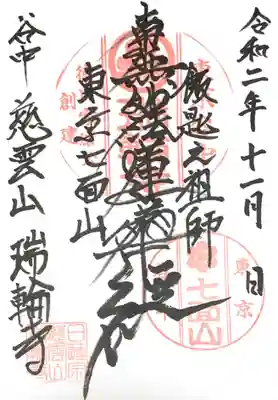 令和二年十一月 日
飯匙之祖師
南無妙法蓮華経
東京七面山
谷中 慈雲山 瑞輪寺
東京
七面山
創建